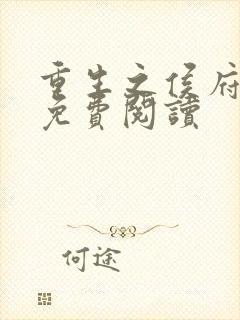 重生之侯府
免費閱讀
何途